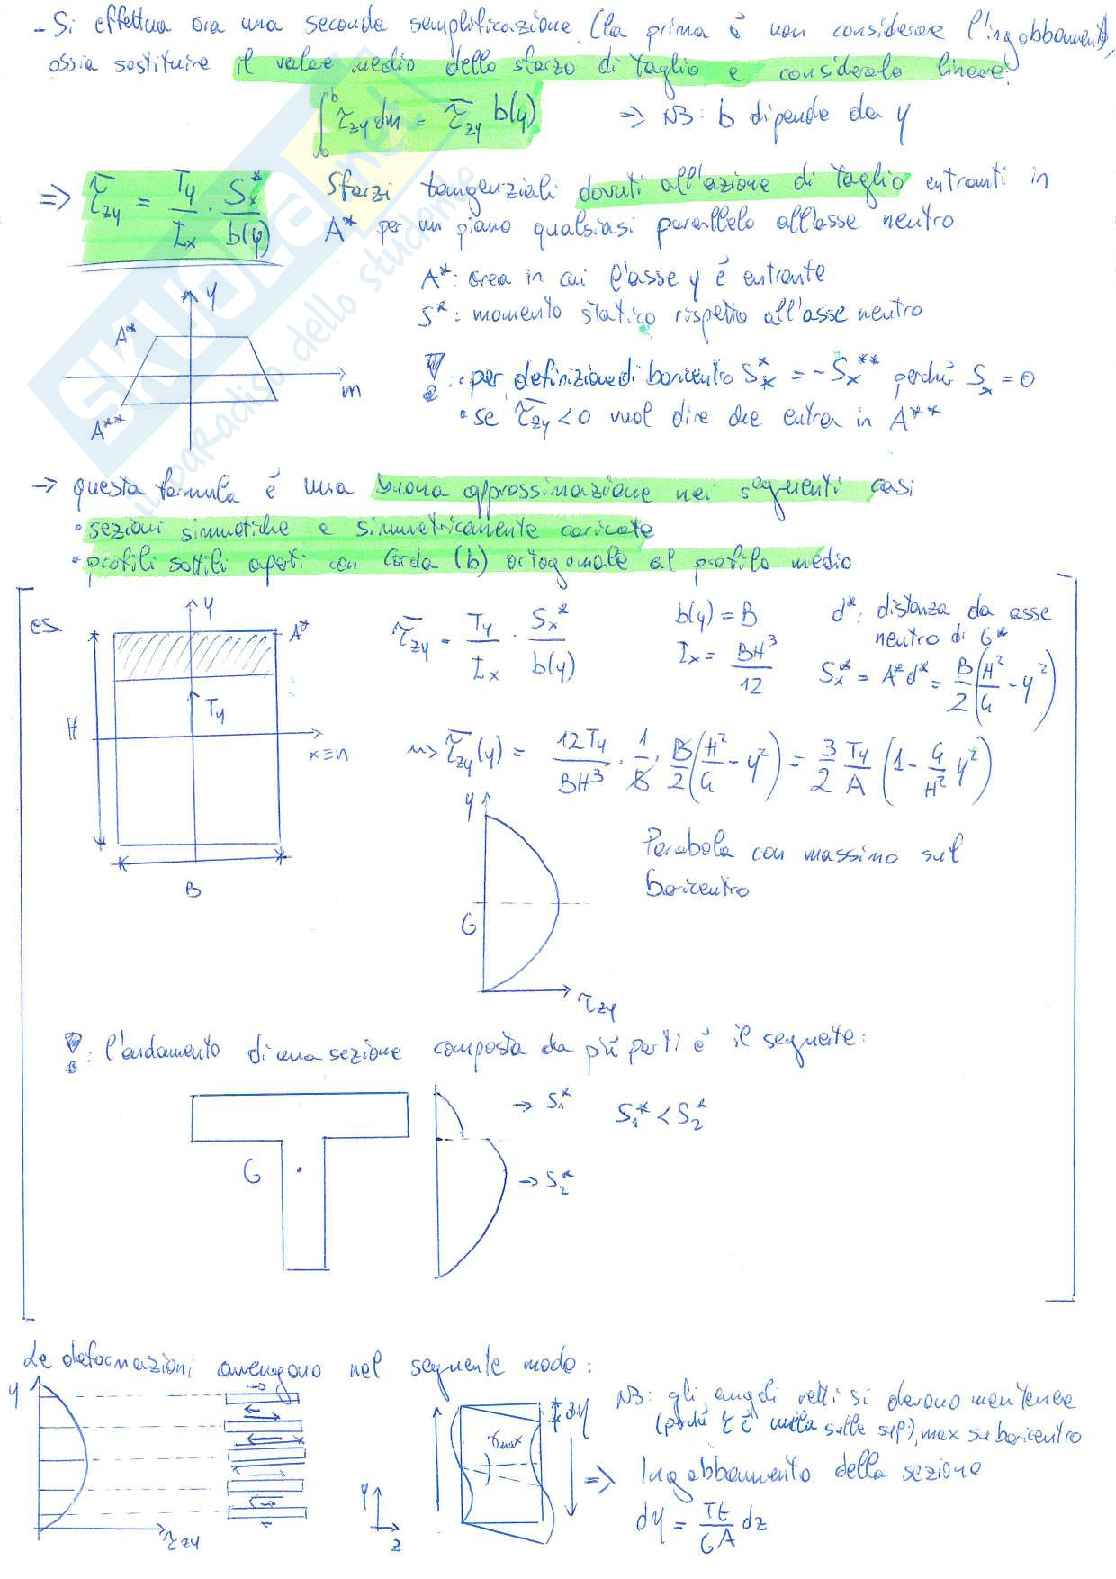 - Si effettua ora una seconda semplificazione (la prima è non considerare l'ingobbamento),
ossia sostituire il valore medio dello sforzo di taglio e considerarlo lineare.
∫₀ᵇ τzy dm = τ̄zy b(y) => NB: b dipende da y
=> τ̄zy = Ty/Ix · Sx*/b(y) Sforzi tangenziali dovuti all'azione di taglio entranti in
A* per un piano qualsiasi parallelo all'asse neutro
A*: area in cui l'asse y è entrante
S*: momento statico rispetto all'asse neutro
y
A*
m
A**
! : • per definizione di baricentro Sx* = -Sx** perché Sx = 0
• se τ̄zy < 0 vuol dire che entra in A**
-> questa formula è una buona approssimazione nei seguenti casi
• sezioni simmetriche e simmetricamente caricate
• profili sottili aperti con corda (b) ortogonale al profilo medio
es.
y
A*
Ty
H
x≡n
B
τ̄zy = Ty/Ix · Sx*/b(y)
b(y) = B
Ix = BH³/12
d*: distanza da asse
neutro di G*
Sx* = A*d* = B/2 (H²/4 - y²)
=> τ̄zy(y) = 12Ty/BH³ · 1/B · B/2 (H²/4 - y²) = 3/2 Ty/A (1 - 4/H² y²)
y
G
τzy
Parabola con massimo sul
baricentro
! : l'andamento di una sezione composta da più parti è il seguente:
G
-> S₁*
S₁* < S₂*
-> S₂*
Le deformazioni avvengono nel seguente modo:
y
τzy
y
z
τmax
dy
NB: gli angoli retti si devono mantenere
(perché τ è nulla sulle sup), max su baricentro
=> Ingobbamento della sezione
dy = Tt/GA dz
SKUOLA.net
il paradiso dello studente